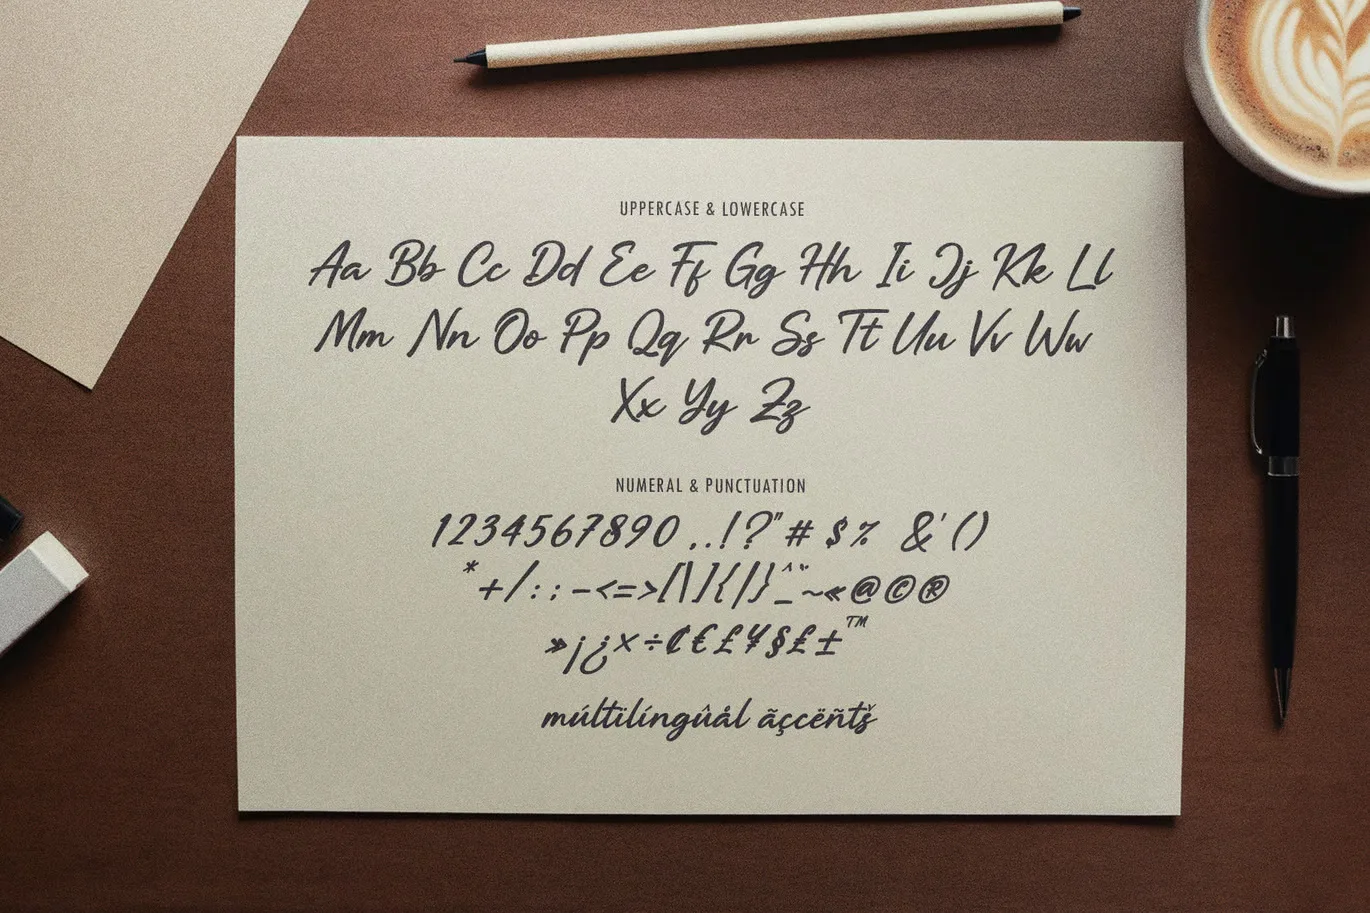 UPPERCASE & LOWERCASE
Aa Bb Cc Dd Ee Ff Gg Hh Ii Jj Kk Ll
Mm Nn Oo Pp Qq Rr Ss Tt Uu Vv Ww
Xx Yy Zz
NUMERAL & PUNCTUATION
1234567890 ,.!?"# $% &'()
*+/:;-<=>[\]{|}^¨_~«@©®
»¡¿×÷₡€£¥§₤±™
múltïlíngûål ãçcëñtš